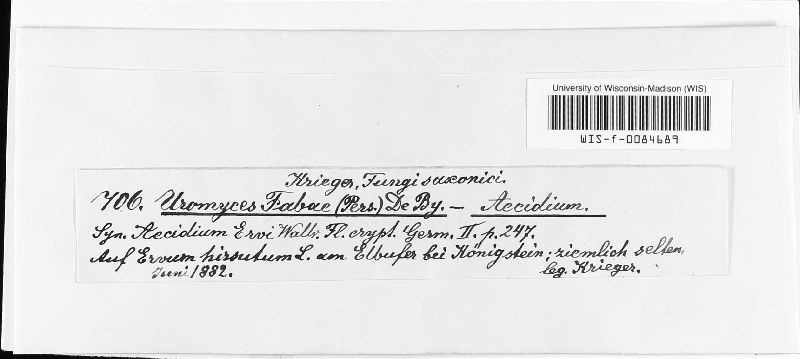 University of Wisconsin-Madison (WIS)
WIS-f-0084689
Krieger, Fungi saxonici.
706. Uromyces Fabae (Pers.) De By. — Aecidium.
Syn. Aecidium Ervi Wallr. Fl. crypt. Germ. II. p. 247.
Auf Ervum hirsutum L. am Elbufer bei Königstein; ziemlich selten.
Juni 1882. leg. Krieger.